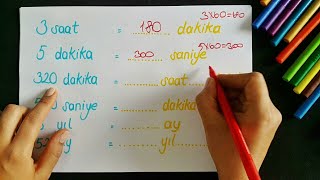 3x60=180
3 saat = 180 dakika
5x60=300
5 dakika = 300 saniye
320 dakika = ........ saat ........
saniye = ............ dakika
yıl = ............ ay
ay = ........ yıl